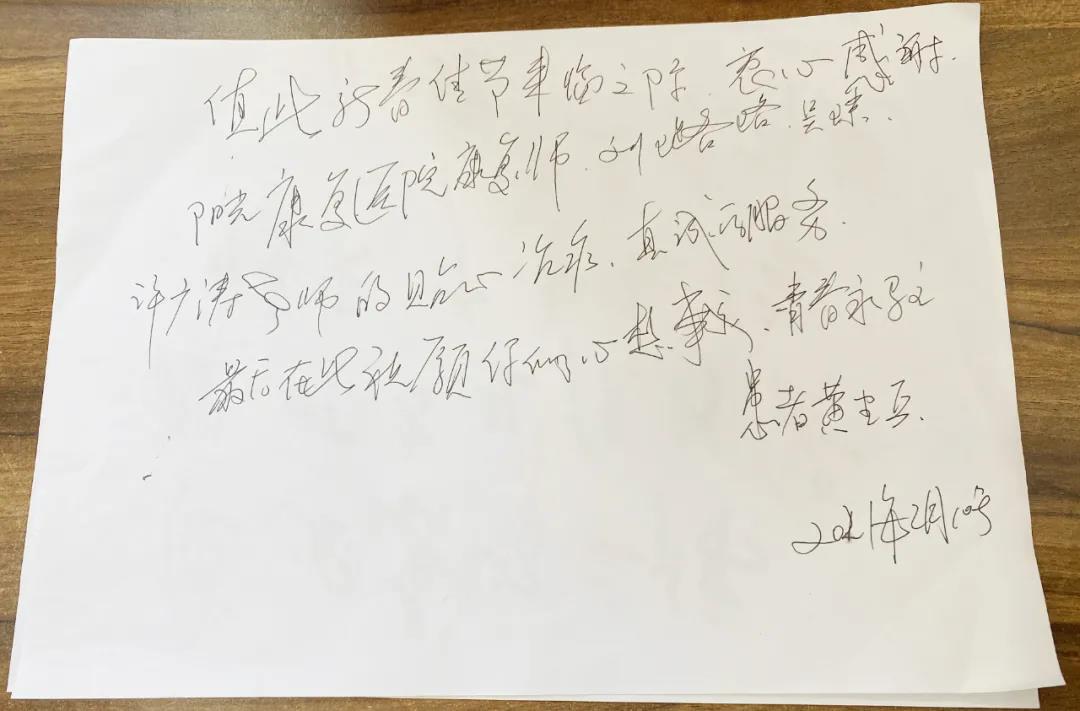 值此新春佳节来临之际、衷心感谢.
阳光康复医院康复师、刘路路、吴瑧、
许广涛等师的贴心治疗、真诚的服务.
最后在此祝愿你们心想事成、青春永驻
患者黄
2021年2月10号